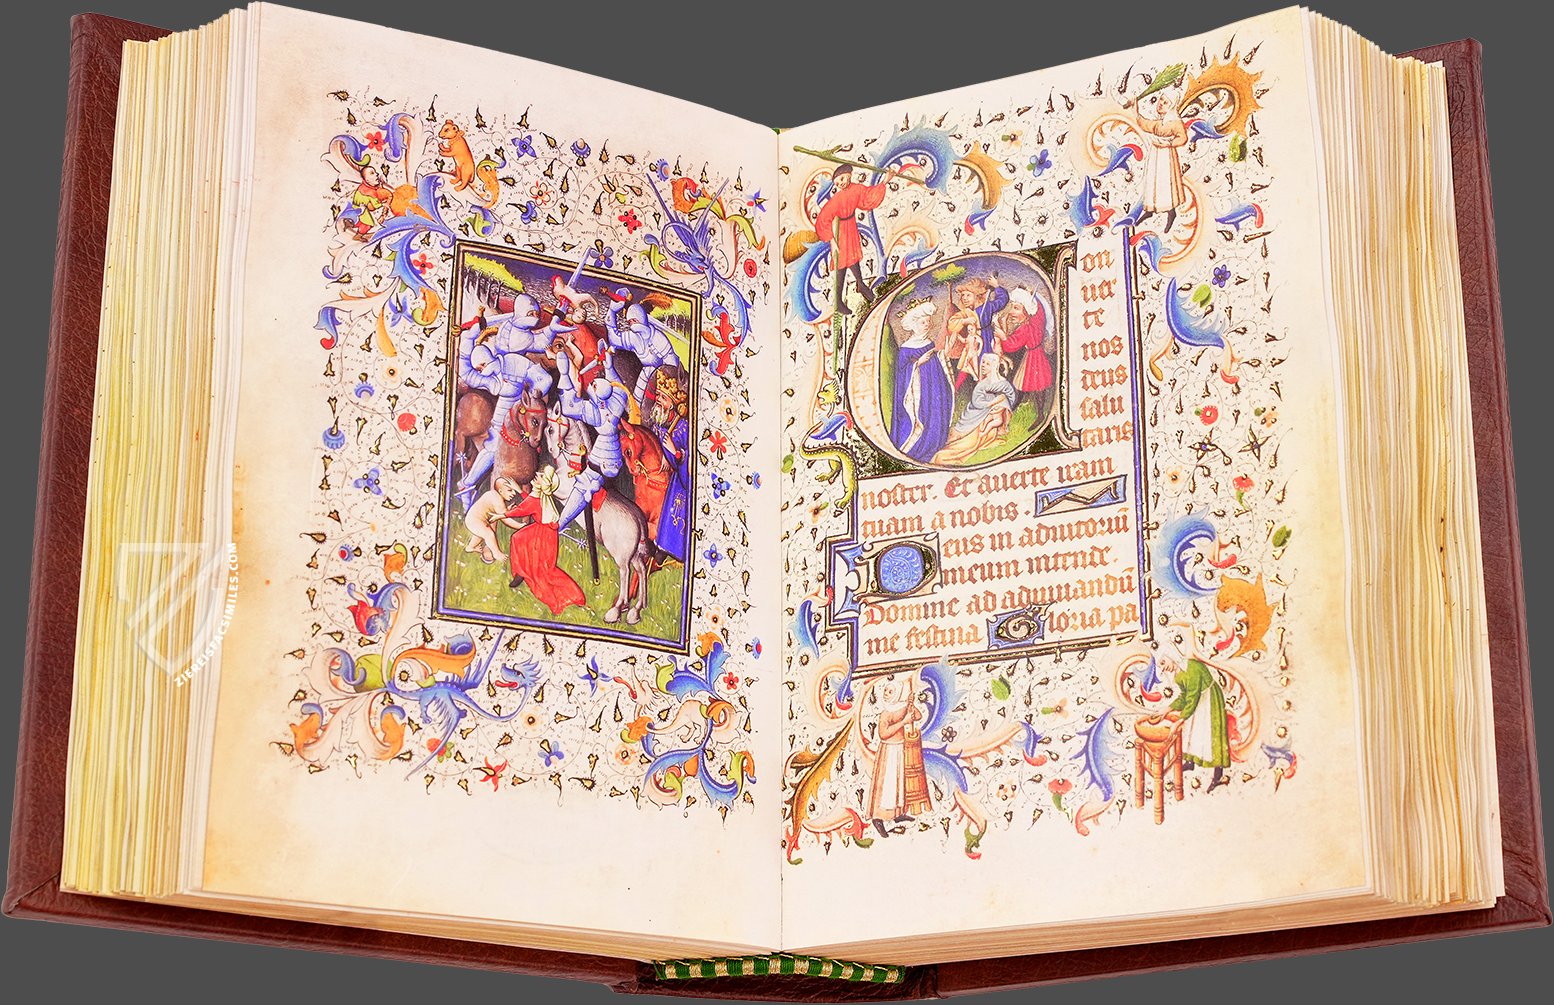 on
uer
te
nos
deus
salu
taris
noster. Et auerte iram
tuam a nobis.
eus in adiutoriū
meum intende
Domine ad adiuuandū
me festina Gloria pa
ZIEREISFACSIMILES.COM